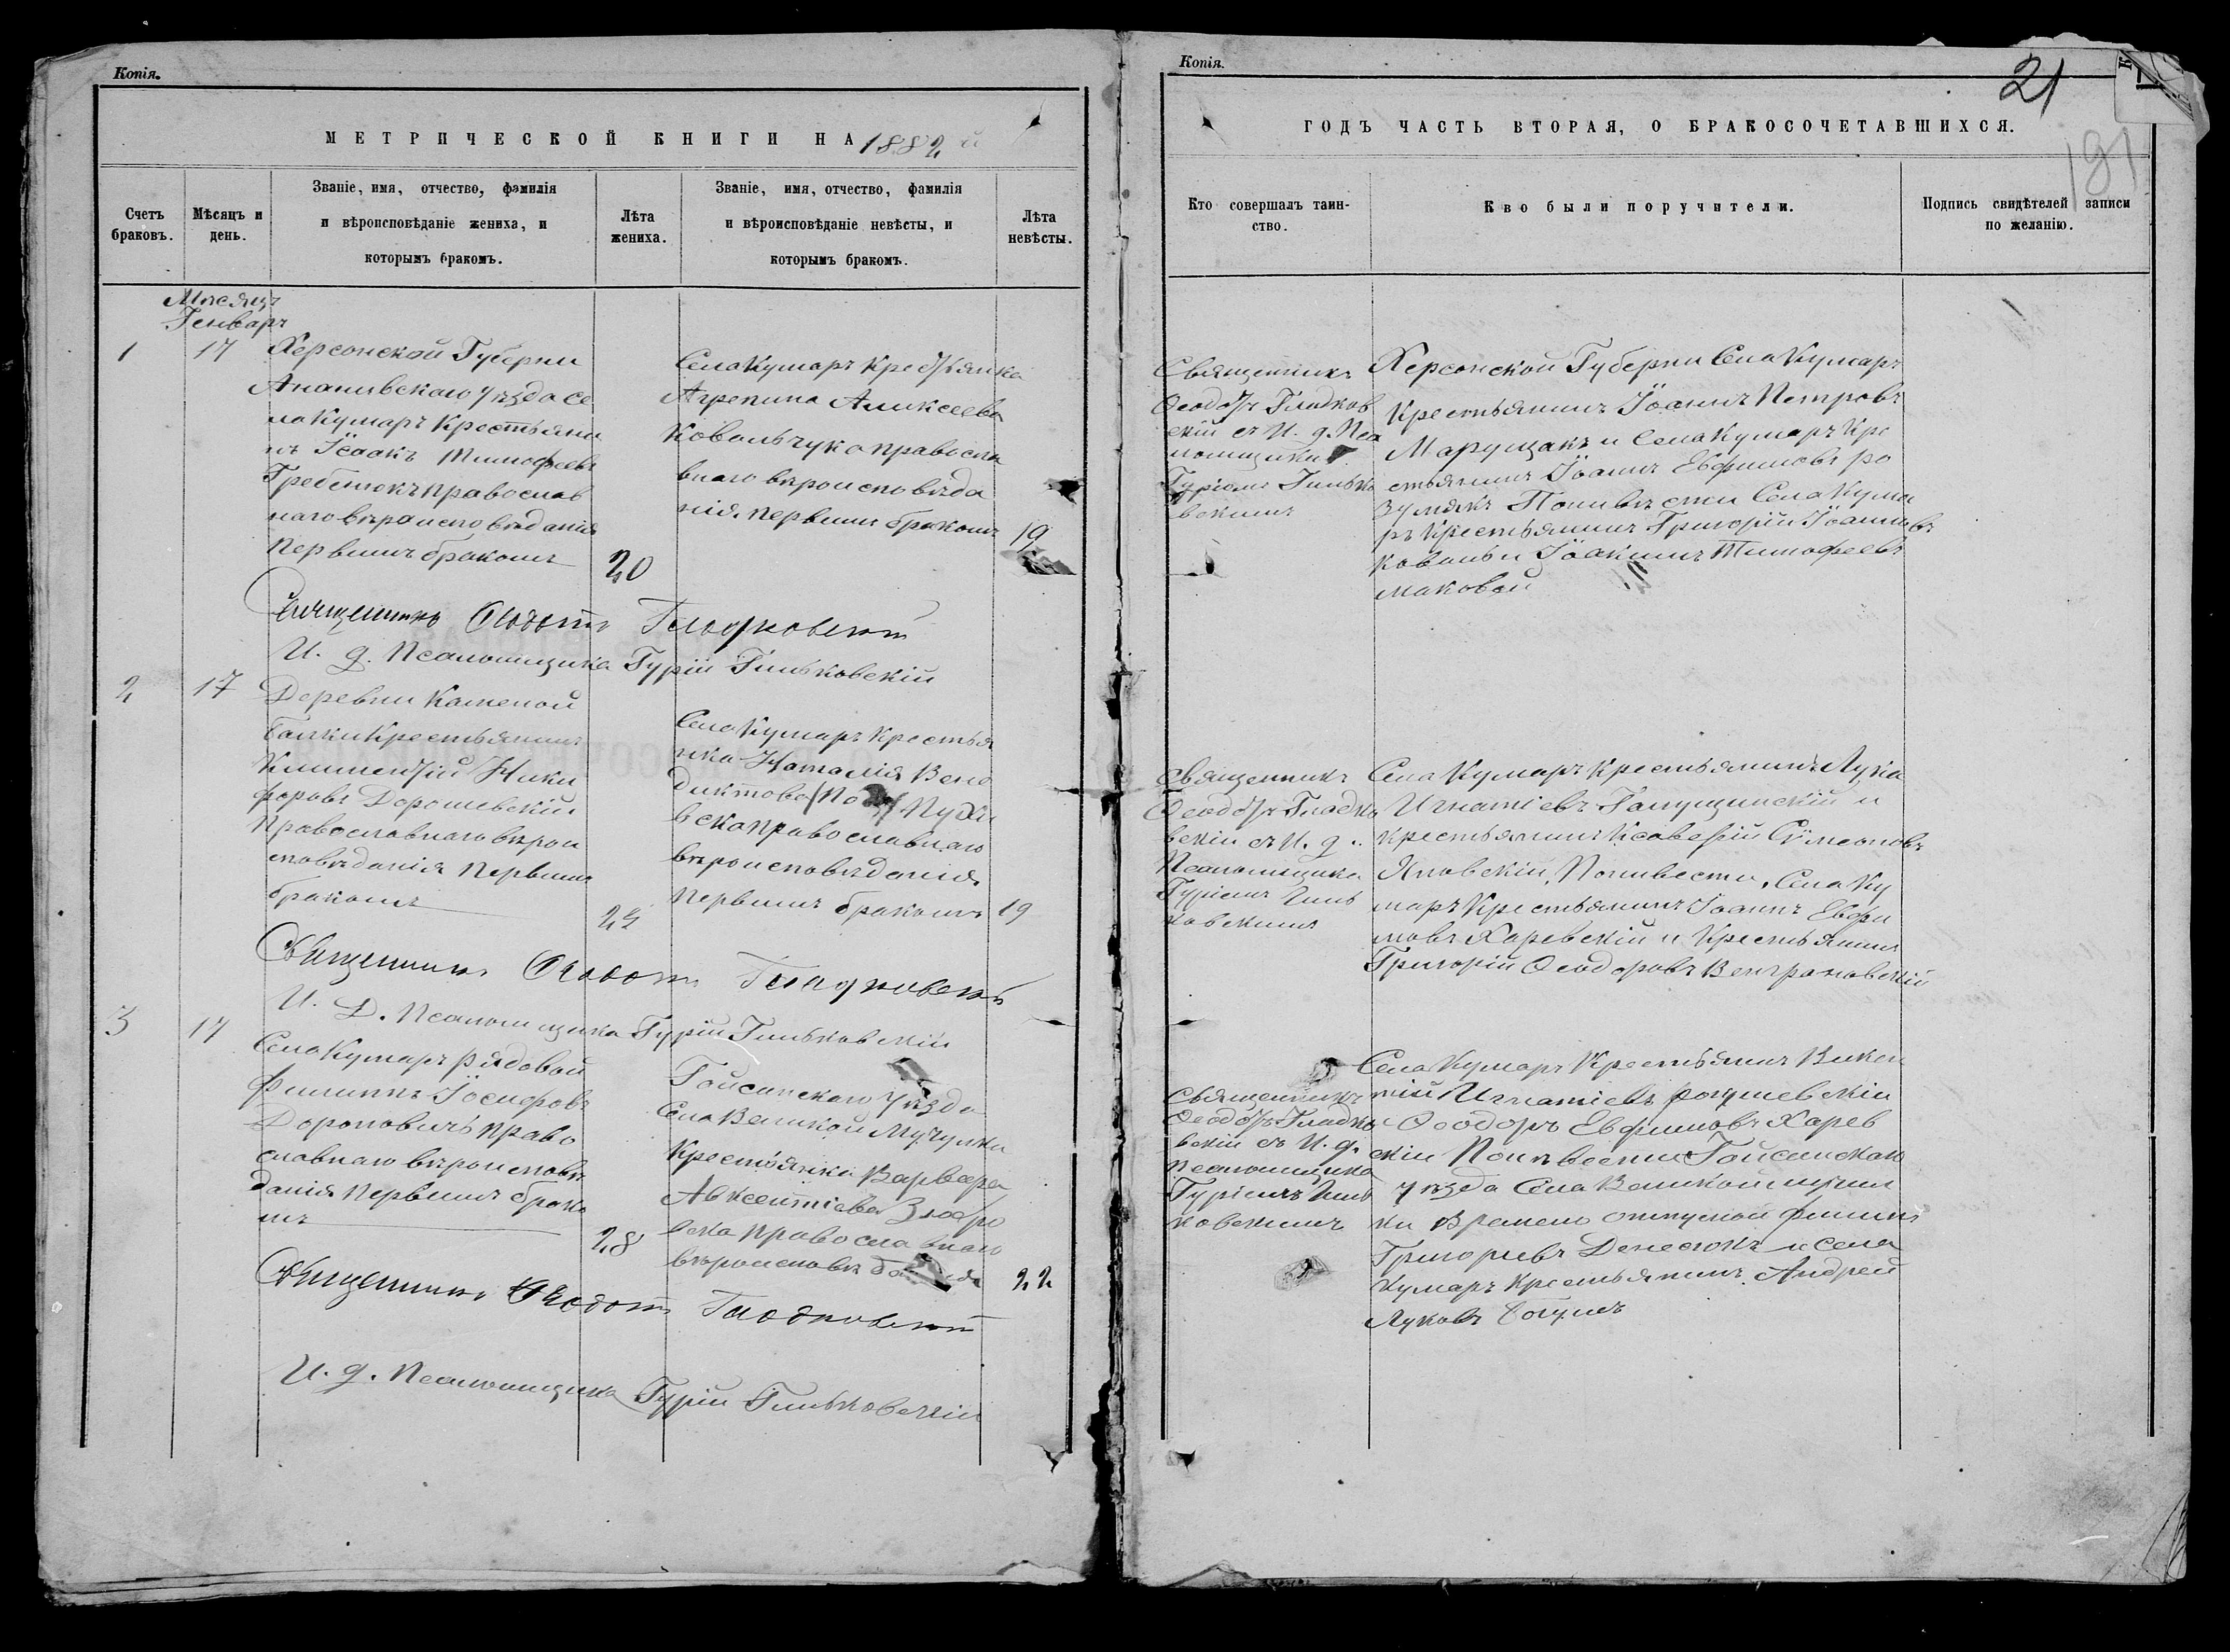 Копія.
МЕТРИЧЕСКОЙ КНИГИ НА 1882 й
Счетъ браковъ.
Мѣсяцъ и день.
Званіе, имя, отчество, фамилія
и вѣроисповѣданіе жениха, и
которымъ бракомъ.
Лѣта жениха.
Званіе, имя, отчество, фамилія
и вѣроисповѣданіе невѣсты, и
которымъ бракомъ.
Лѣта невѣсты.
Мѣсяцъ
Генварь
1
17
Херсонской Губерни
Ананивскаго уѣзда се
ла Кумаръ Крестьяни
нъ Ісаакъ Тимофеевъ
Гребенюкъ православ
наго вѣроисповѣданія
первымъ бракомъ
20
Села Кумаръ Крестьянка
Агрепина Аликсеева
Ковальчука правосла
внаго вѣроисповѣда
нія первымъ бракомъ
19
Священникъ Феодотъ Гладковскій
И. д. Псаломщика Гурій Гиньковскій
2
17
Деревни Каменой
Балки Крестьянинъ
Климентій Ники
форовъ Дорошевскій
Православнаго вѣрои
сповѣданія Первымъ
бракомъ
Села Кумаръ Крестья
нка Наталія Вене
диктова
вска православнаго
вѣроисповѣданія
первымъ бракомъ
19
Священникъ Феодотъ Гладковскій
И. Д. Псаломщика Гурій Гиньковскій
3
17
Села Кумаръ рядовой
Филиппъ Іосифовъ
Дороповичъ право
славнаго вѣроисповѣ
данія первымъ брако
мъ
28
Гайсинскаго уѣзда
Села Великой Мучулки
Крестьянка Варвара
Авксентіева
вска православнаго
вѣроисповѣданія
22
Священникъ Феодотъ Гладковскій
И. д. Псаломщика Гурій Гиньковскій
Копія.
21
191
ГОДЪ ЧАСТЬ ВТОРАЯ, О БРАКОСОЧЕТАВШИХСЯ.
Кто совершалъ таинство.
Кво были поручители.
Подпись свидѣтелей записи
по желанію.
Священникъ
Феодотъ Гладков
скій съ И. д. Пса
ломщика
Гуріемъ Гинько
вскимъ
Херсонской Губерни Села Кумаръ
Крестьянинъ Іоаннъ Петровъ
Марущакъ и Села Кумаръ Кре
стьянинъ Іоаннъ Евфимовъ ро
зумякъ По невѣсти Села Кума
ръ Крестьянинъ Григорій Іоанновъ
Коваль и Іоакимъ Тимофеевъ
маковей
Священникъ
Феодотъ Гладко
вскій съ И. д.
Псаломщика
Гуріемъ Гинь
ковскимъ
Села Кумаръ Крестьянинъ Лука
Игнатіевъ Галущинскій и
крестьянинъ Ксаверій Симеоновъ
По невѣсти Села Ку
маръ Крестьянинъ Іоаннъ Евфи
мовъ Харевскій и Крестьянинъ
Григорій Феодоровъ Венграновскій
Священникъ
Феодотъ Гладко
вскій съ И. д.
псаломщика
Гуріемъ Гинь
ковскимъ
Села Кумаръ Крестьянинъ Викен
тій Игнатіевъ
и Феодоръ Евфимовъ Харев
скій По невѣсти Гайсинскаго
уѣзда Села Великой мучул
ки Времено отпускной Филипъ
Григориевъ Денесюкъ и Села
Кумаръ Крестьянинъ Андрей
Луковъ